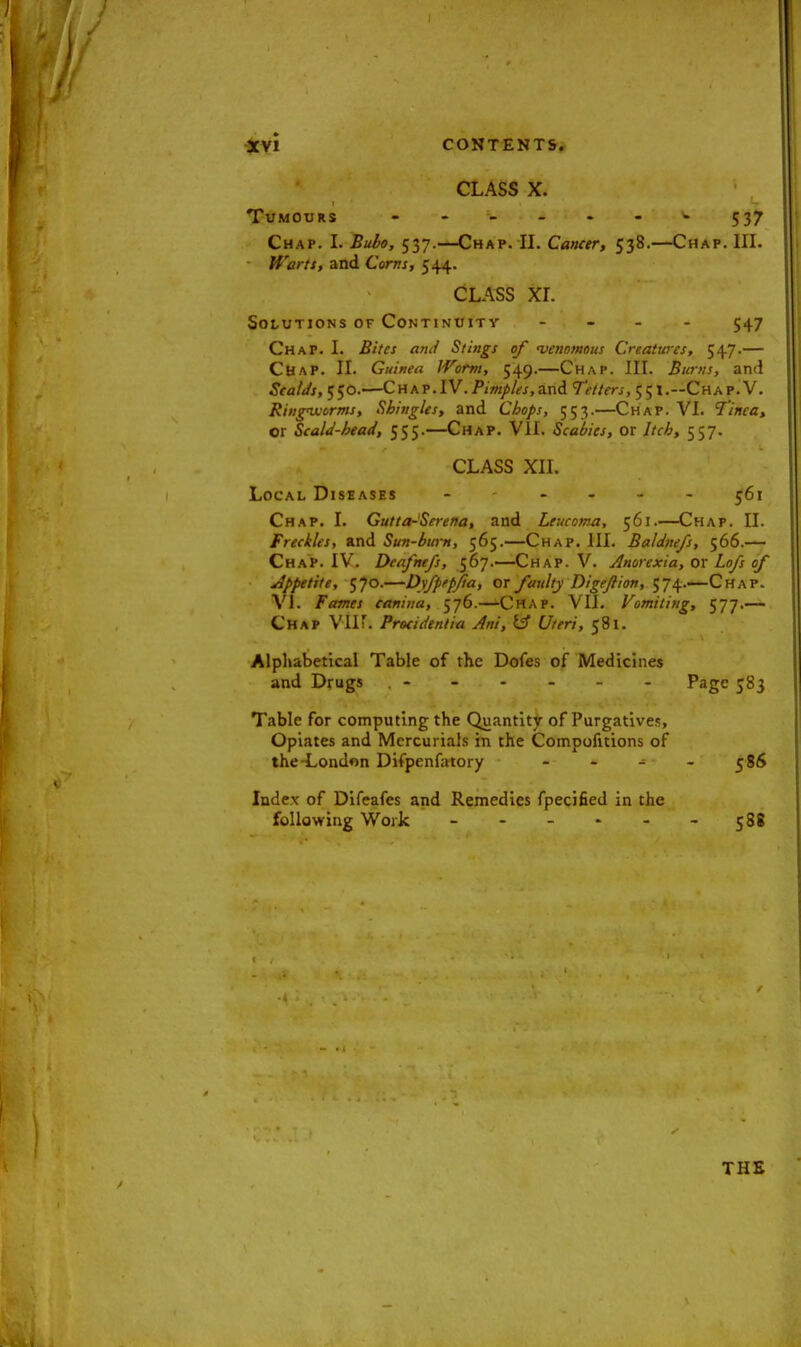 xvi CONTENTS.
CLASS X.
TUMOURS - - - - - - - 537
CHAP. I. Bubo, 537.—CHAP. II. Cancer, 538.—CHAP. III.
Warts, and Corns, 544.
CLASS XI.
SOLUTIONS OF CONTINUITY - - - - 547
CHAP. I. Bites and Stings of venomous Creatures, 547.—
CHAP. II. Guinea Worm, 549.—CHAP. III. Burns, and
Scalds, 550.—CHAP. IV. Pimples, and Tetters, 551.--CHAP. V.
Ringworms, Shingles, and Chops, 553.—CHAP. VI. Tinea,
or Scald-head, 555.—CHAP. VII. Scabies, or Itch, 557.
CLASS XII.
LOCAL DISEASES - - - - - - 561
CHAP. I. Gutta-Serena, and Leucoma, 561.—CHAP. II.
Freckles, and Sun-burn, 565.—CHAP. III. Baldneſs, 566.—
CHAP. IV. Deafneſs, 567.—CHAP. V. Anorexia, or Loſs of
Appetite, 570.—Dyſpepſia, or faulty Digeſtion, 574.—CHAP.
VI. Fames canina, 576.—CHAP. VII. Vomiting, 577.—
CHAP VIII. Procidentia Ani, & Uteri, 581.
Alphabetical Table of the Doſes of Medicines
and Drugs . - - - - - - Page 583
Table for computing the Quantity of Purgatives,
Opiates and Mercurials in the Compoſitions of
the London Diſpenſatory - - - - 586
Index of Diſeaſes and Remedies ſpecified in the
following Work - - - - - - 588
THE